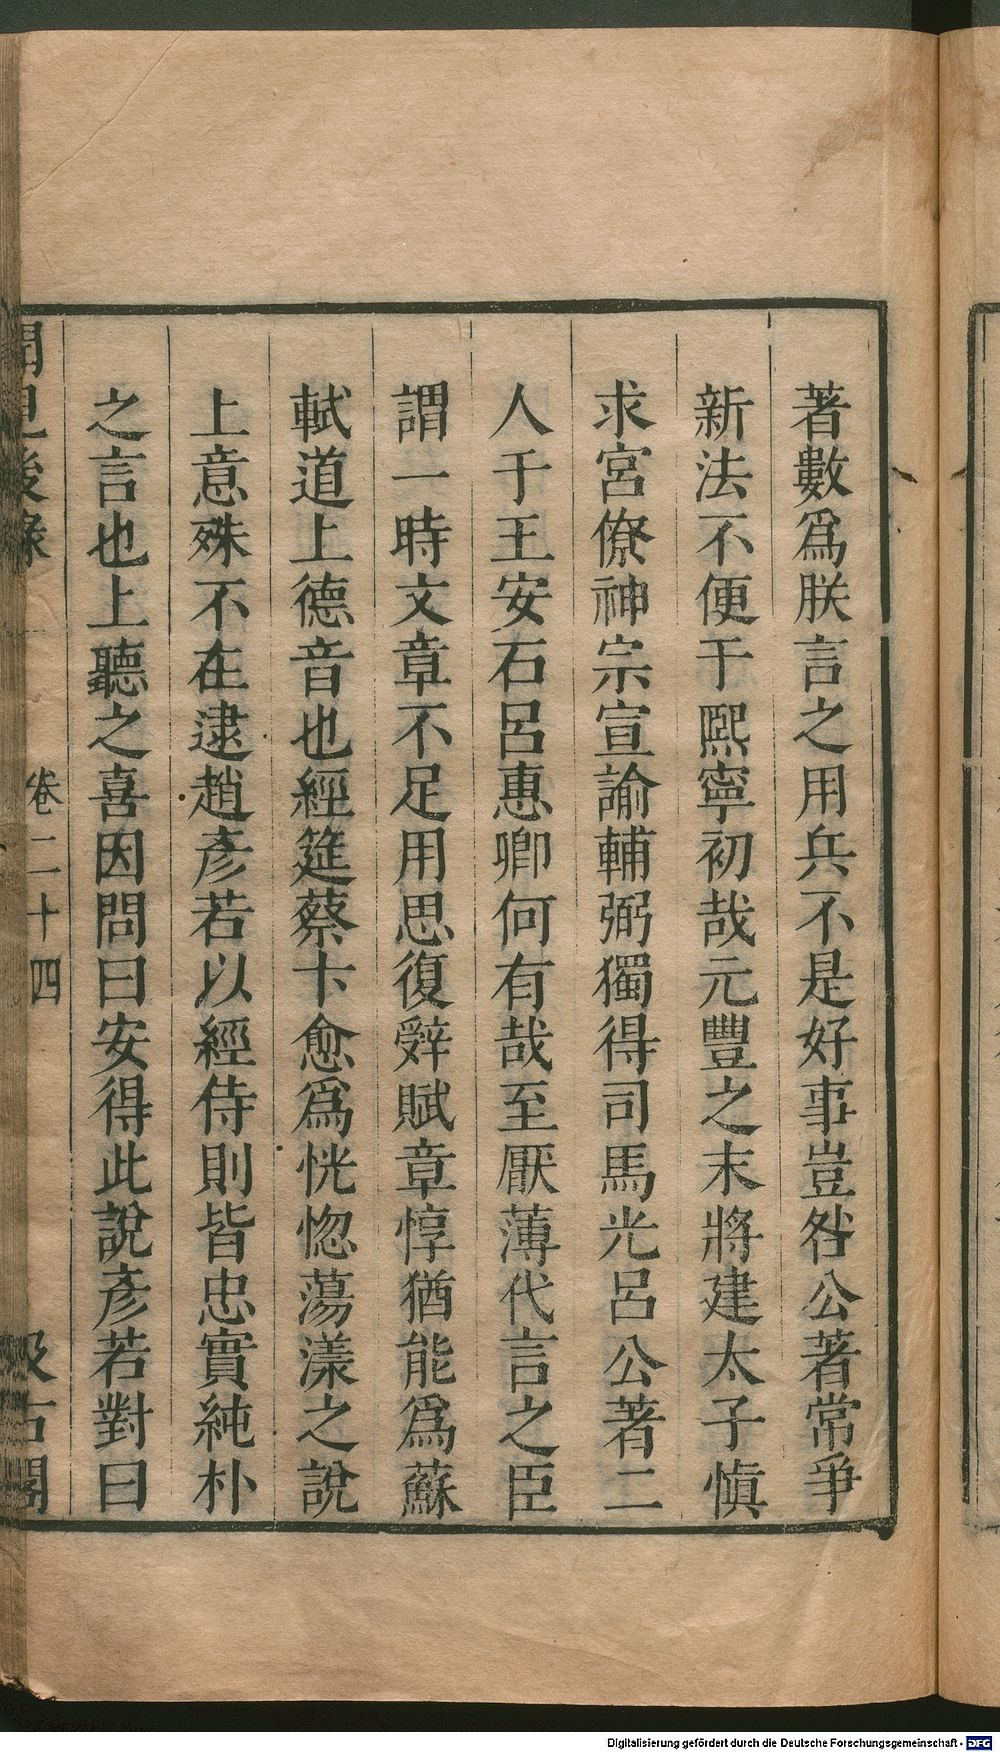 著數爲朕言之用兵不是好事豈咎公著常爭
新法不便于熈寧初哉元豐之末將建太子慎
求宮僚神宗宣諭輔弼獨得司馬光呂公著二
人于王安石呂惠卿何有哉至厭薄代言之臣
謂一時文章不足用思復辭賦章惇猶能爲蘇
軾道上德音也經筵蔡卞愈爲恍惚蕩漾之說
上意殊不在逮趙彥若以經侍則皆忠實純朴
之言也上聽之喜因問曰安得此說彥若對曰
聞見後錄 卷二十四 汲古閣
Digitalisierung gefördert durch die Deutsche Forschungsgemeinschaft - DFG